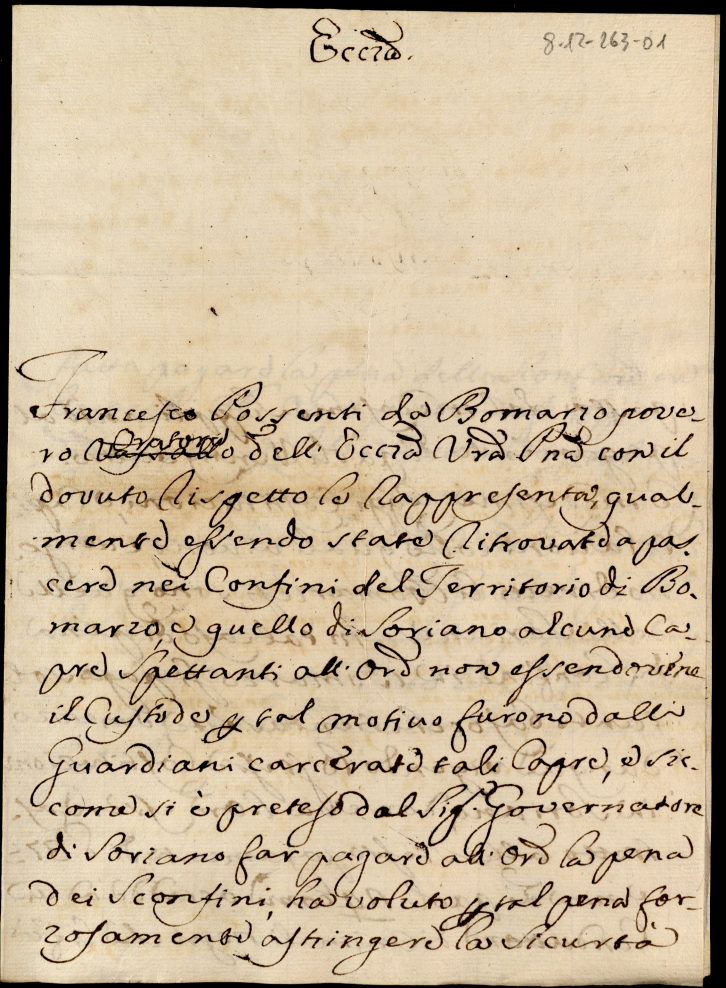 Eccza.
8-12-263-01
Francesco Possenti da Bomarzo pove-
ro Oratore dell' Eccza Vra Pna con il
dovuto rispetto le rappresenta, qual-
mente essendo state ritrovate a pas-
cere nei Confini del Territorio di Bo-
marzo, e quello di Soriano alcune Ca-
pre spettanti all' Ore non essendovene
il Custode p tal motivo furono dalli
Guardiani carcerate tali Capre, e sic-
come si è preteso dal Sigr. Governatore
di Soriano far pagare all' Ore la pena
dei Sconfini, ha voluto p tal pena for-
zosamente astringere la sicurtà